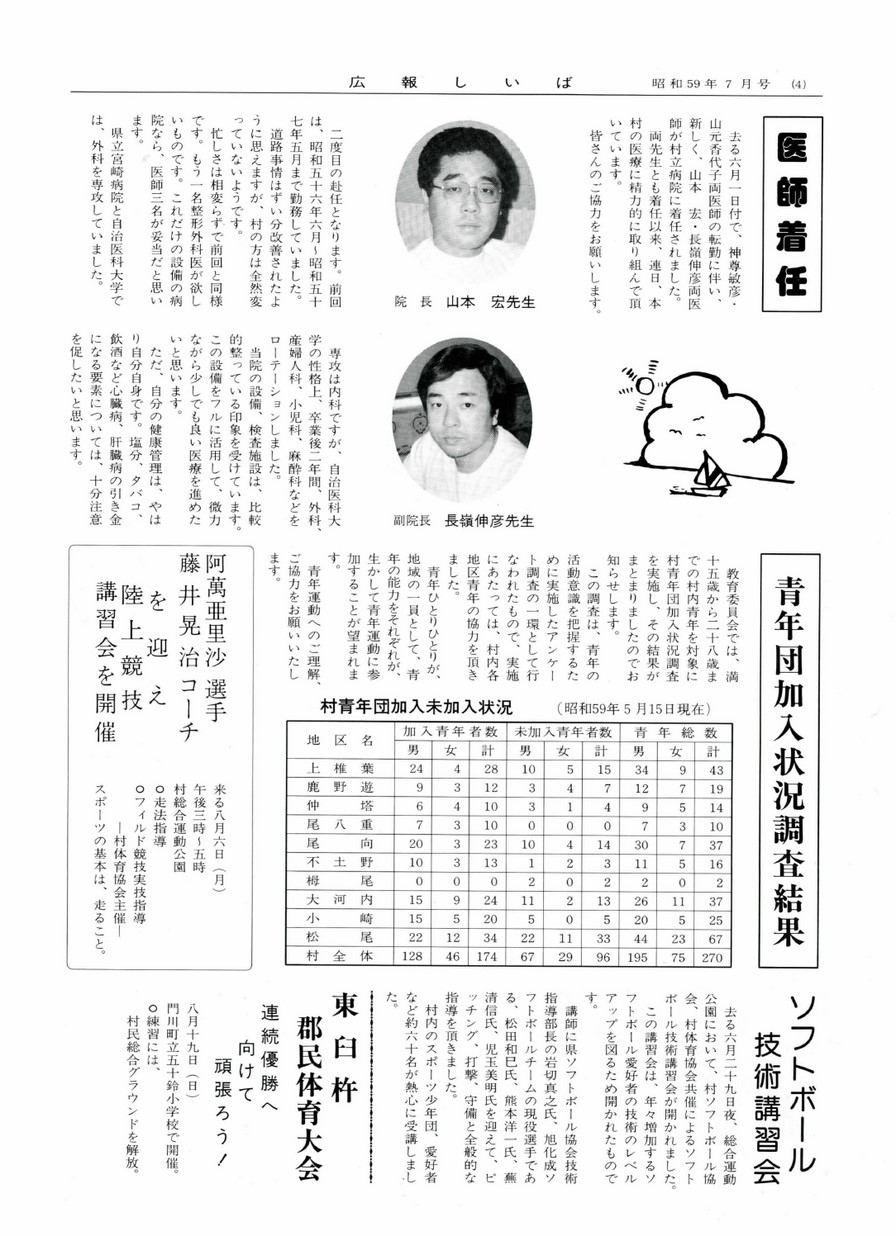 広報しいば 昭和59年7月号 (4)
医師着任
去る六月一日付で、神尊敏彦・
山元香代子両医師の転勤に伴い、
新しく、山本 宏・長嶺伸彦両医
師が村立病院に着任されました。
両先生とも着任以来、連日、本
村の医療に精力的に取り組んで頂
いています。
皆さんのご協力をお願いします。
院長 山本 宏先生
二度目の赴任となります。前回
は、昭和五十六年六月~昭和五十
七年五月まで勤務していました。
道路事情はずい分改善されたよ
うに思えますが、村の方は全然変
っていないようです。
忙しさは相変らずで前回と同様
です。もう一名整形外科医が欲し
いものです。これだけの設備の病
院なら、医師三名が妥当だと思い
ます。
県立宮崎病院と自治医科大学で
は、外科を専攻していました。
副院長 長嶺伸彦先生
専攻は内科ですが、自治医科大
学の性格上、卒業後二年間、外科、
産婦人科、小児科、麻酔科などを
ローテーションしました。
当院の設備、検査施設は、比較
的整っている印象を受けています。
この設備をフルに活用して、微力
ながら少しでも良い医療を進めた
いと思います。
ただ、自分の健康管理は、やは
り自分自身です。塩分、タバコ、
飲酒など心臓病、肝臓病の引き金
になる要素については、十分注意
を促したいと思います。
青年団加入状況調査結果
教育委員会では、満
十五歳から二十八歳ま
での村内青年を対象に
村青年団加入状況調査
を実施し、その結果が
まとまりましたのでお
知らせします。
この調査は、青年の
活動意識を把握するた
めに実施したアンケー
ト調査の一環として行
なわれたもので、実施
にあたっては、村内各
地区青年の協力を頂き
ました。
青年ひとりひとりが、
地域の一員として、青
年の能力をそれぞれが、
生かして青年運動に参
加することが望まれま
す。
青年運動へのご理解、
ご協力をお願いいたし
ます。
村青年団加入未加入状況 (昭和59年5月15日現在)
地区名 加入青年者数 未加入青年者数 青年総数
男 女 計 男 女 計 男 女 計
上椎葉 24 4 28 10 5 15 34 9 43
鹿野遊 9 3 12 3 4 7 12 7 19
仲塔 6 4 10 3 1 4 9 5 14
尾八重 7 3 10 0 0 0 7 3 10
尾向 20 3 23 10 4 14 30 7 37
不土野 10 3 13 1 2 3 11 5 16
栂尾 0 0 0 2 0 2 2 0 2
大河内 15 9 24 11 2 13 26 11 37
小崎 15 5 20 5 0 5 20 5 25
松尾 22 12 34 22 11 33 44 23 67
村全体 128 46 174 67 29 96 195 75 270
阿萬亜里沙選手
藤井晃治コーチ
を迎え
陸上競技
講習会を開催
来る八月六日(月)
午後三時~五時
村総合運動公園
○走法指導
○フィルド競技実技指導
―村体育協会主催―
スポーツの基本は、走ること。
ソフトボール
技術講習会
去る六月二十九日夜、総合運動
公園において、村ソフトボール協
会、村体育協会共催によるソフト
ボール技術講習会が開かれました。
この講習会は、年々増加するソ
フトボール愛好者の技術のレベル
アップを図るため開かれたもので
す。
講師に県ソフトボール協会技術
指導部長の岩切真之氏、旭化成ソ
フトボールチームの現役選手であ
る、松田和巳氏、熊本洋一氏、蕪
清信氏、児玉美明氏を迎えて、ピ
ッチング、打撃、守備と全般的な
指導を頂きました。
村内のスポーツ少年団、愛好者
など約六十名が熱心に受講しまし
た。
東臼杵
郡民体育大会
連続優勝へ
向けて
頑張ろう!
八月十九日(日)
門川町立五十鈴小学校で開催。
○練習には、
村民総合グラウンドを解放。